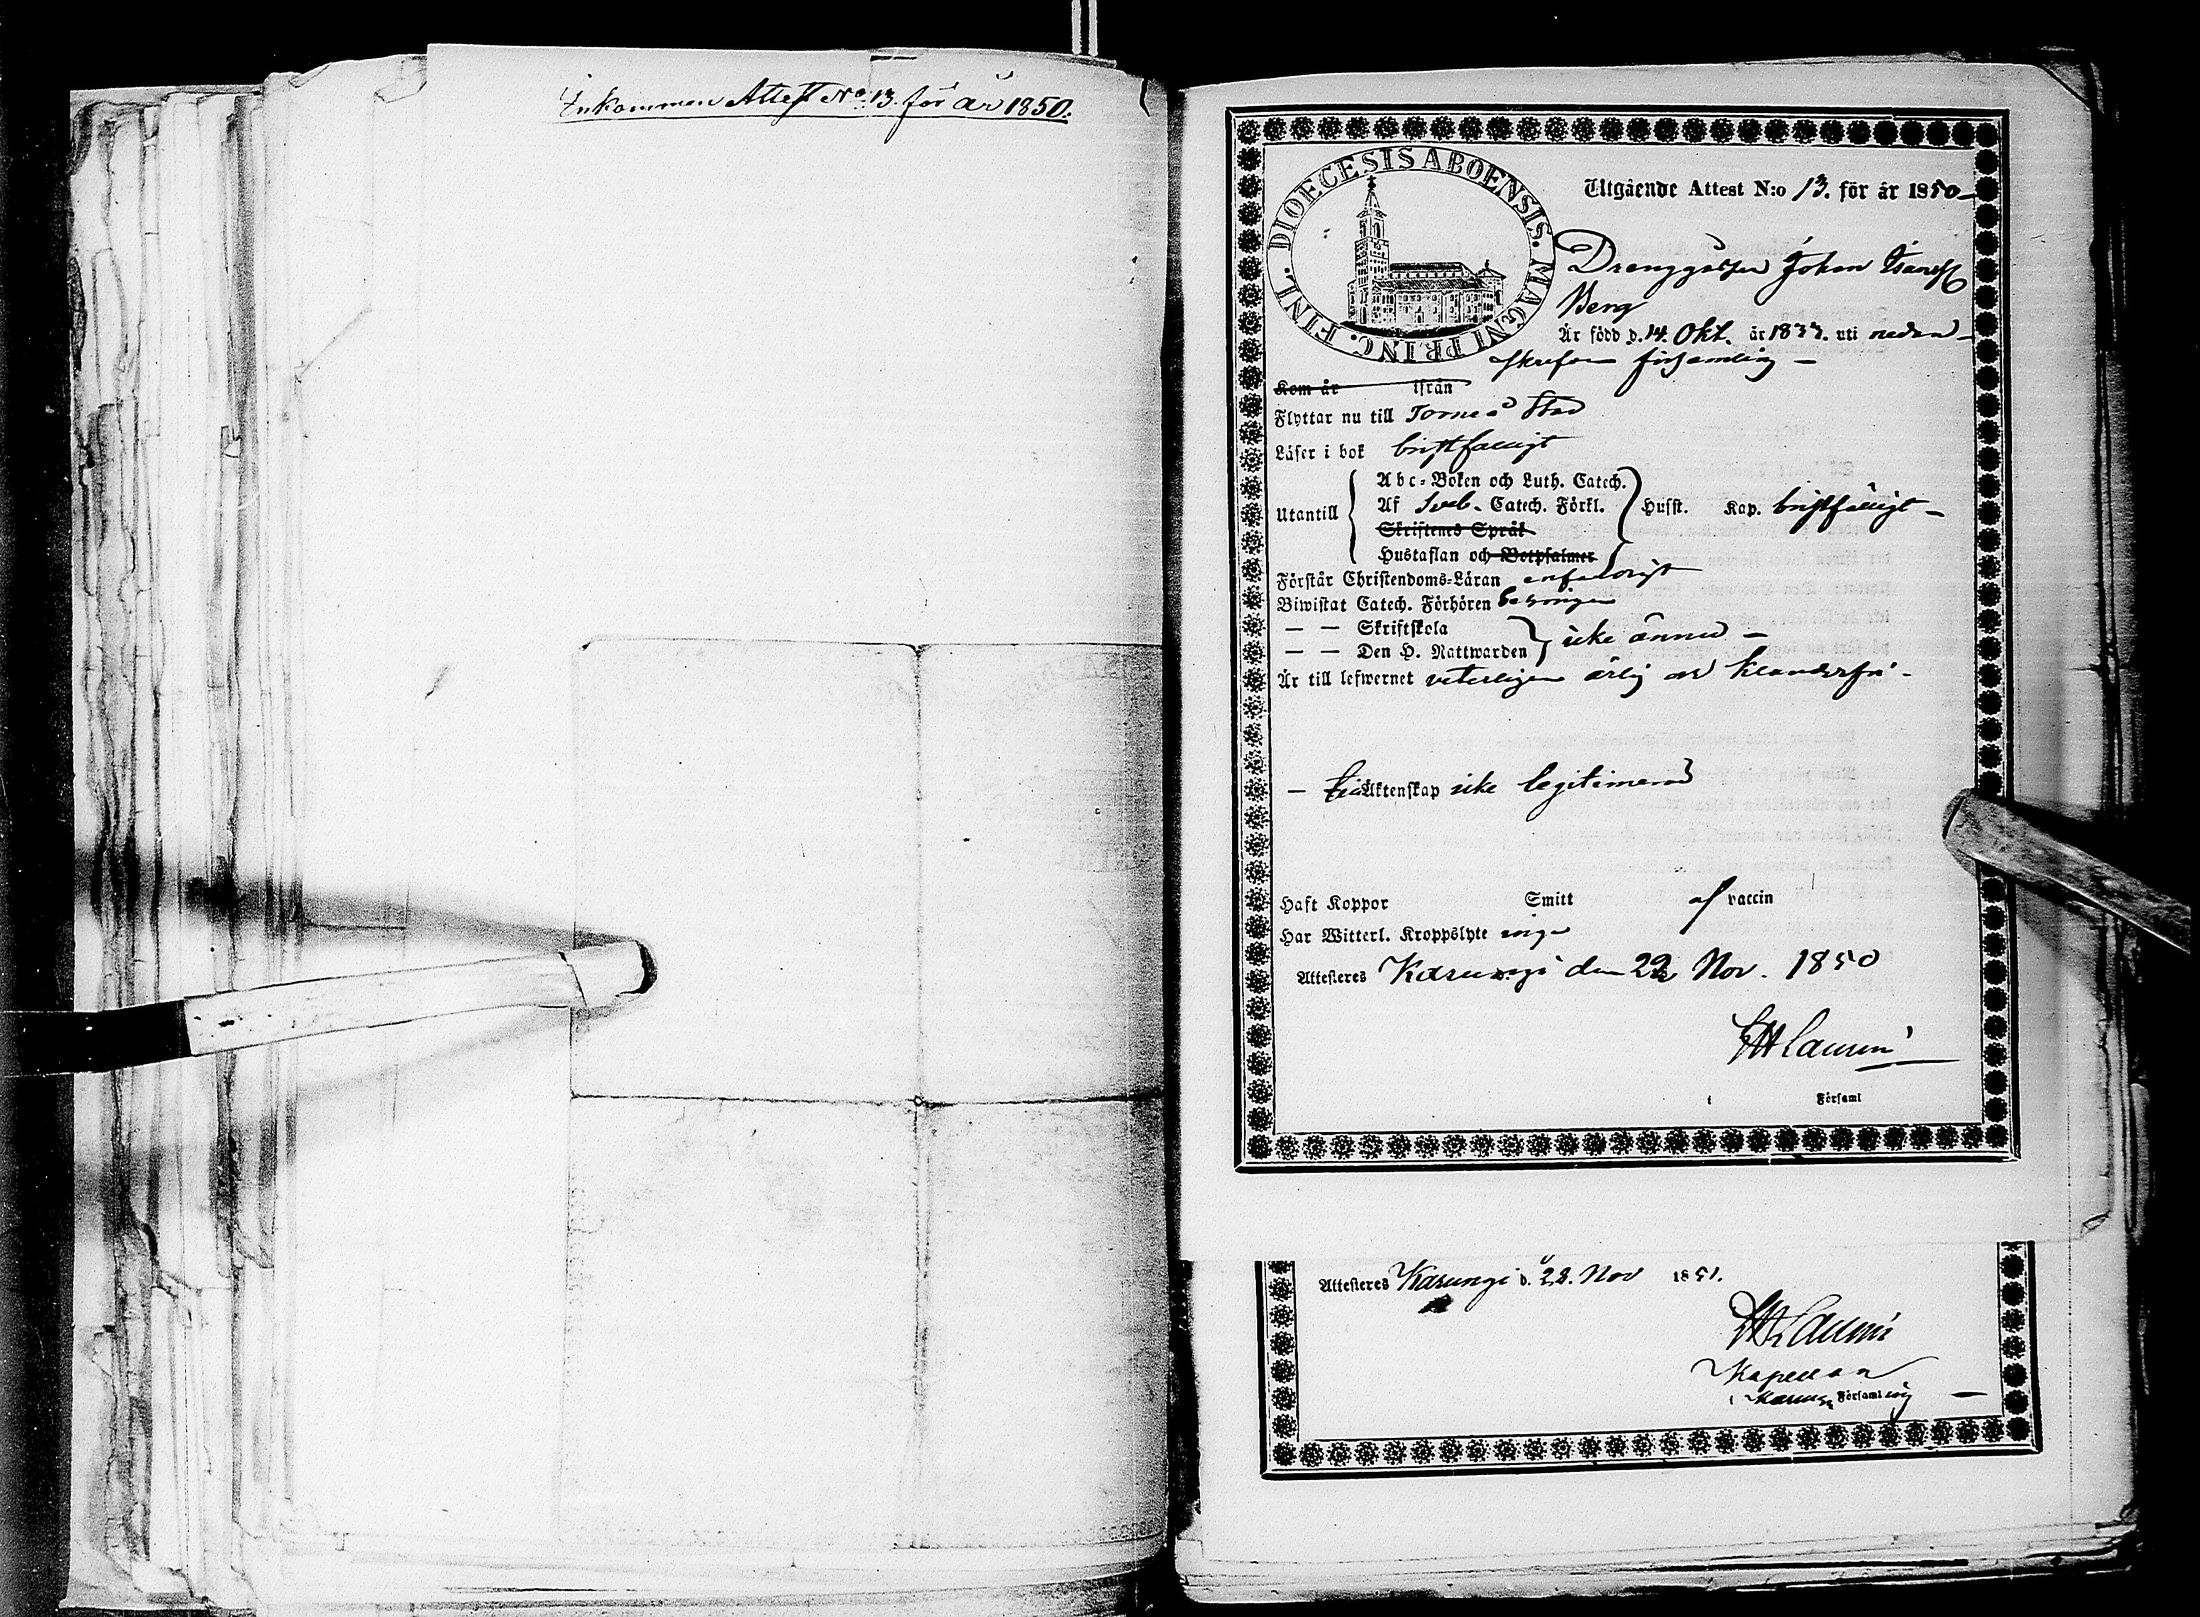 Inkommen Attest No 13. för år 1850.
DIOECESIS ABOENSIS. MAGNI PRINC. FINL.
Utgående Attest N:o 13. för år 1850
Drenggossen Johan
Berg
Är född d. 14. Okt. år 1833. uti nedan-
skrefne församling —
Kom år ifrån
Flyttar nu till Torneå Stad
Läser i bok bristfälligt
Utantill
Abc-Boken och Luth. Catech.
Af Sveb. Catech. Förkl.
Skriftenes Språk
Hustaflan och Botpsalmer
Husst. Kap. bristfälligt —
Förstår Christendoms-Läran enfaldigt
Biwistat Catech. Förhören
— — Skriftskola
— — Den H. Nattwarden
icke ännu —
Är till lefwernet veterligen ärlig och klanderfri -
— till Äktenskap icke legitimerad
Haft Koppor Smitt af vaccin
Har Witterl. Kroppslyte inga
Attesteres Karungi den 22 Nov. 1850
Laurin
i Församl
Attesteres Karungi d. 28. Nov 1851.
Laurin
Kapellan
i Karungi Församling —